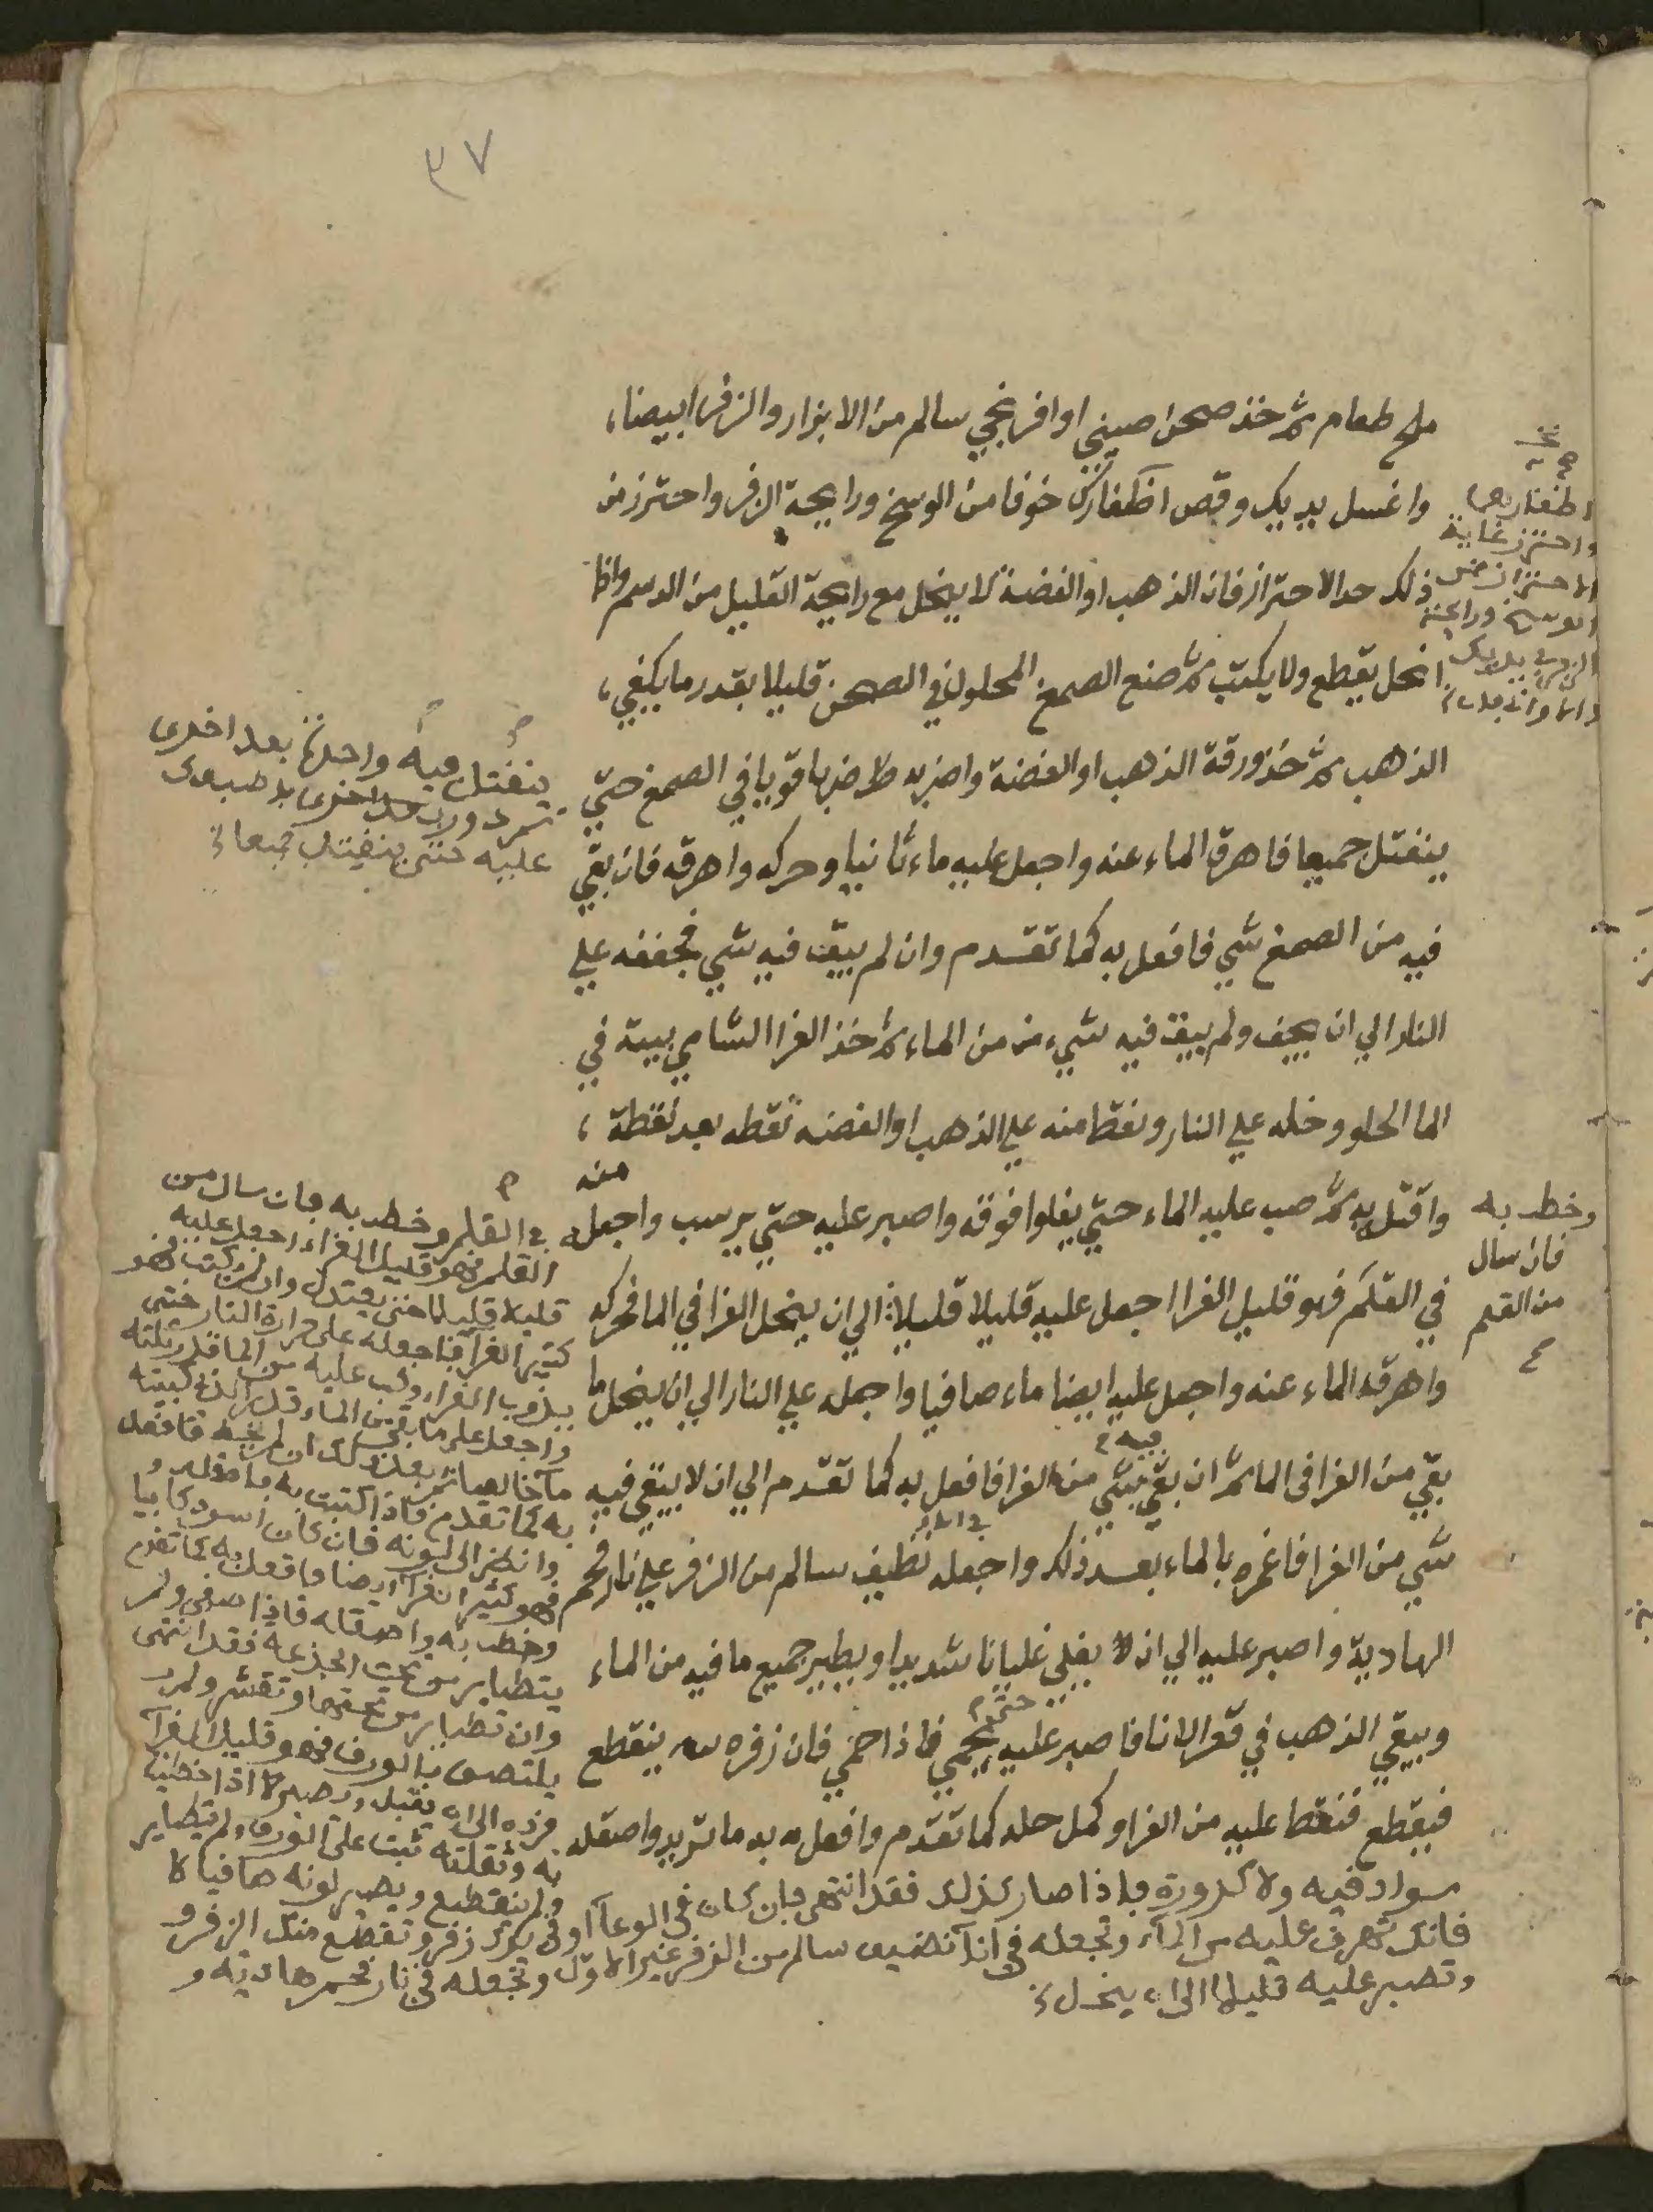 ٣٧
ملح طعام ثم خذ صحن صيني او افرنجي سالم من الابزار والزفر ابيضا،
واغسل يديك وقص اظفارك خوفا من الوسخ ورايحة الزفر واحترز من
ذلك حد الاحتراز فان الذهب او الفضة لا ينحل مع رايحة القليل من الدسم واذا
انحل يقطع ولا يكتب ثم صنع الصمغ المحلول في الصحن قليلا بقدر ما يكفي،
الذهب ثم خذ ورقة الذهب او الفضة واضربه ضربا قويا في الصمغ حتي
ينفتل جميعا فاهرق الماء عنه واجعل عليه ماء ثانيا وحركه واهرقه فان بقي
فيه من الصمغ شي فافعل به كما تقدم وان لم يبق فيه شي فجففه علي
النار الي ان يجف ولم يبق فيه شيء من من الماء ثم خذ الغرا الشامي بيته في
الما الحلو وخله علي النار ونقط منه علي الذهب او الفضه نقطه بعد نقطة،
واقتل به ثم صب عليه الماء حتي يغلوا فوقه واصبر عليه حتي يرسب واجعل منه
في القلم فهو قليل الغرا اجعل عليه قليلا قليلا الي ان ينحل الغرا في الما فحركه
واهرق الماء عنه واجعل عليه ايضا ماء صافيا واجعله علي النار الي ان ينحل ما
بقي من الغرا في الما ثم ان بقي فيه شي من الغرا فافعل به كما تقدم الي ان لا يبقي فيه
شي من الغرا فاغمره بالماء بعد ذلك واجعله نظيف سالم من الزفر علي نار فحم
الهادية واصبر عليه الي ان يغلي غليانا شديدا ويطير جميع ما فيه من الماء
ويبقي الذهب في قعر الانا فاصبر عليه حتي يحمي فاذا حمي فان زفره ينقطع
فيقطع فنقط عليه من الغرا وكمل حله كما تقدم وافعل به ما تريد واصقله
سواد فيه ولا كدورة فاذا صار كذلك فقد انتهي فان كان في الوعآ او في يدك زفر وتقطع منك الزفر و
فانك تهرق عليه من المآء وتجعله في انآ نضيف سالم من الزفر غير الاول وتجعله في نار فحم هادية و
وتصبر عليه قليلا الي ينحل
اظفارهما
واحترز غاية
الاحتراز من
الوسخ ورايحة
وخطر به
فان سال
من القلم
ينفتل فيه واحدة بعد اخري
عليه حتي ينفتل جميعا
في القلم وخطر به فان سال من
القلم فهو قليل الغراء اجعل عليه
قليلا قليلا حتي يعتدل وان لم يكتب فهو
كثير الغرآ فاجعله علي حرارة النار حتي
يذوب الغراء وكب عليه من الما قدر ثلثه
به كما تقدم فاذا كتبت به
وانظر الي لونه فان كان اسود كابيا
فهو كثير الغرآ ايضا فافعل به كما تقدم
وخطر به واصقله فاذا صفي ولم
يتطاير من تحت الجزعة فقد انتهي
وان تطاير من تحتها وتقشر ولم
يلتصق بالورق فهو قليل الغرآ
فزده الي ان يقبل ويصير اذا خطيت
به وثقلته ثبت علي الورق ولم يتطاير
ولم ينقطع ويصير لونه صافيا لا